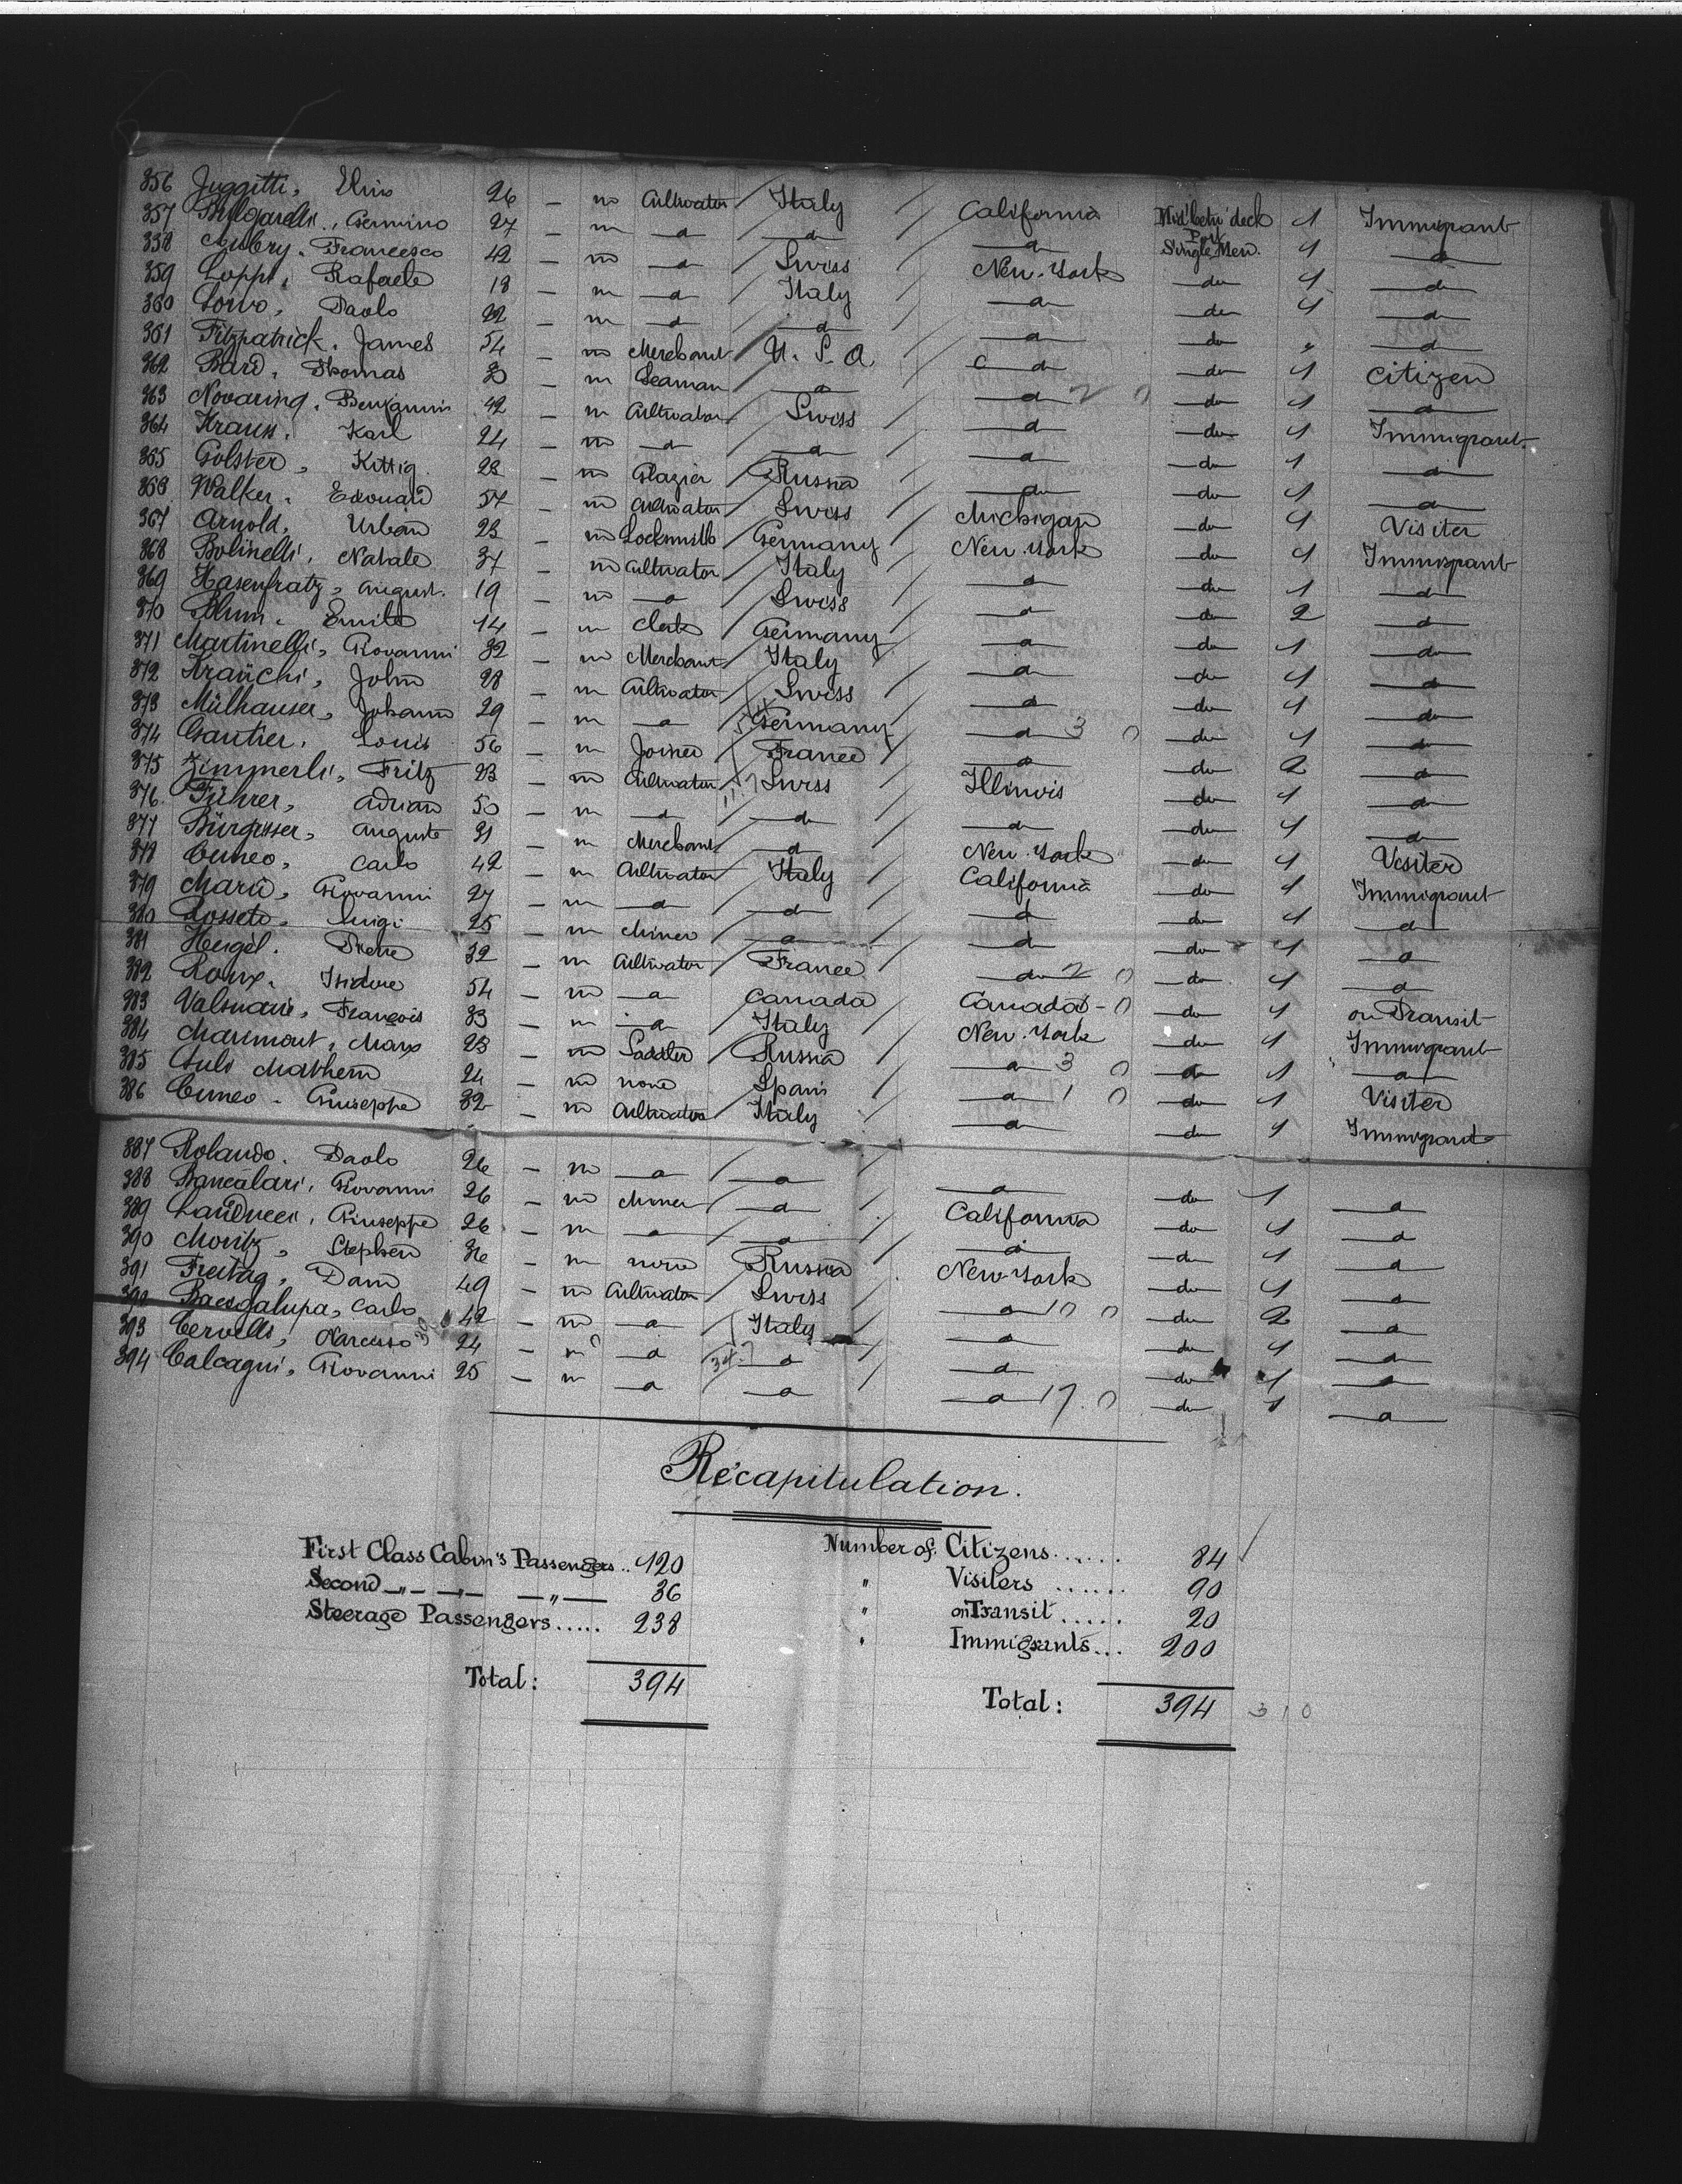 356 Juggitti, Elvio 26 - m Cultivator Italy California Mid' betw deck Port Single Men. 1 Immigrant
357 Bulgarelli, Germino 27 - m - d - - d - - d - 1 - d -
358 Aubry. Francesco 42 - m - d - Swiss New-York - do - 1 - d -
359 Loppi, Rafaele 18 - m - d - Italy - d - - do - 1 - d -
360 Paolo 22 - m - d - - d - - d - - do - " - d -
361 Fitzpatrick. James 54 - m Merchant U.S.A. d - do - 1 Citizen
362 Bard. Thomas 30 - m Seaman - d - - d - 2 0 - do - 1 - d -
363 Novaring. Benjamin 42 - m Cultivator Swiss - d - - do - 1 Immigrant
364 Krauss. Karl 24 - m - d - - d - - d - - do - 1 - d -
365 Golster, Kittig 28 - m Glazier Russia - d - - do - 1 - d -
366 Walker. Edouard 57 - m Cultivator Swiss Michigan - do - 1 Visiter
367 Arnold. Urban 23 - m Locksmith Germany New-York - do - 1 Immigrant
368 Bolinelli, Natale 37 - m Cultivator Italy - d - - do - 1 - d -
369 Hasenfratz, August. 19 - m - d - Swiss - d - - do - 2 - d -
370 Blum. Emile 14 - m Clerk Germany - d - - do - 1 - do -
371 Martinelli, Giovanni 32 - m Merchant Italy - d - - do - 1 - d -
372 Kraüchi, John 28 - m Cultivator Swiss - d - - do - 1 - do -
373 Mülhauser, Johann 29 - m - d - Germany - d - 3 0 - do - 1 - do -
374 Gautier. Louis 56 - m Joiner France - d - - do - 2 - d -
375 Zimmerli, Fritz 23 - m Cultivator Swiss Illinois - do - 1 - d -
376 Führer, Adrian 50 - m - d - - d - - d - - do - 1 - d -
377 Bürgisser, Auguste 31 - m Merchant - d - New-York - do - 1 Visiter
378 Cuneo, Carlo 42 - m Cultivator Italy California - do - 1 Immigrant
379 Giovanni 27 - m - d - - d - - d - - do - 1 - d -
380 Rosseto. Luigi 25 - m Miner - d - - d - - do - 1 - d -
381 Heigel. Pierre 32 - m Cultivator France - do - 2 0 - do - 1 - d -
382 Roux. Isidore 54 - m - d - Canada Canada - 0 - do - 1 on Transit
383 François 33 - m - d - Italy New-York - do - 1 Immigrant
384 Marimont, Marx 23 - m Saddler Russia - d - 3 0 - do - 1 - d -
385 24 - m none Spain - d - 1 0 - do - 1 Visiter
386 Cuneo - Giuseppe 32 - m Cultivator Italy - d - - do - 1 Immigrant
387 Rolando. Paolo 26 - m - d - - d - - d - - do - 1 - d -
388 Bancalari, Giovanni 26 - m Miner - d - California - do - 1 - d -
389 Landucci, Giuseppe 26 - m - d - - d - - d - - do - 1 - d -
390 Moritz, Stephen 36 - m none Russia New-York - do - 1 - d -
391 Freitag, Dam 49 - m Cultivator Swiss - d - 10 0 - do - 2 - d -
392 Bacigalupa, Carlo 42 - m - d - Italy - d - - do - 1 - d -
393 Cervelli, Narcisso 24 - m - d - - d - - d - - do - 1 - d -
394 Calcagni, Giovanni 25 - m - d - - d - - d - 17. 0 - do - 1 - d -
Récapitulation.
First Class Cabin's Passengers.. 120
Second -"- -"- -"- 36
Steerage Passengers..... 238
Total: 394
Number of. Citizens...... 84
" Visiters ...... 90
" on Transit ..... 20
" Immigrants... 200
Total: 394 310